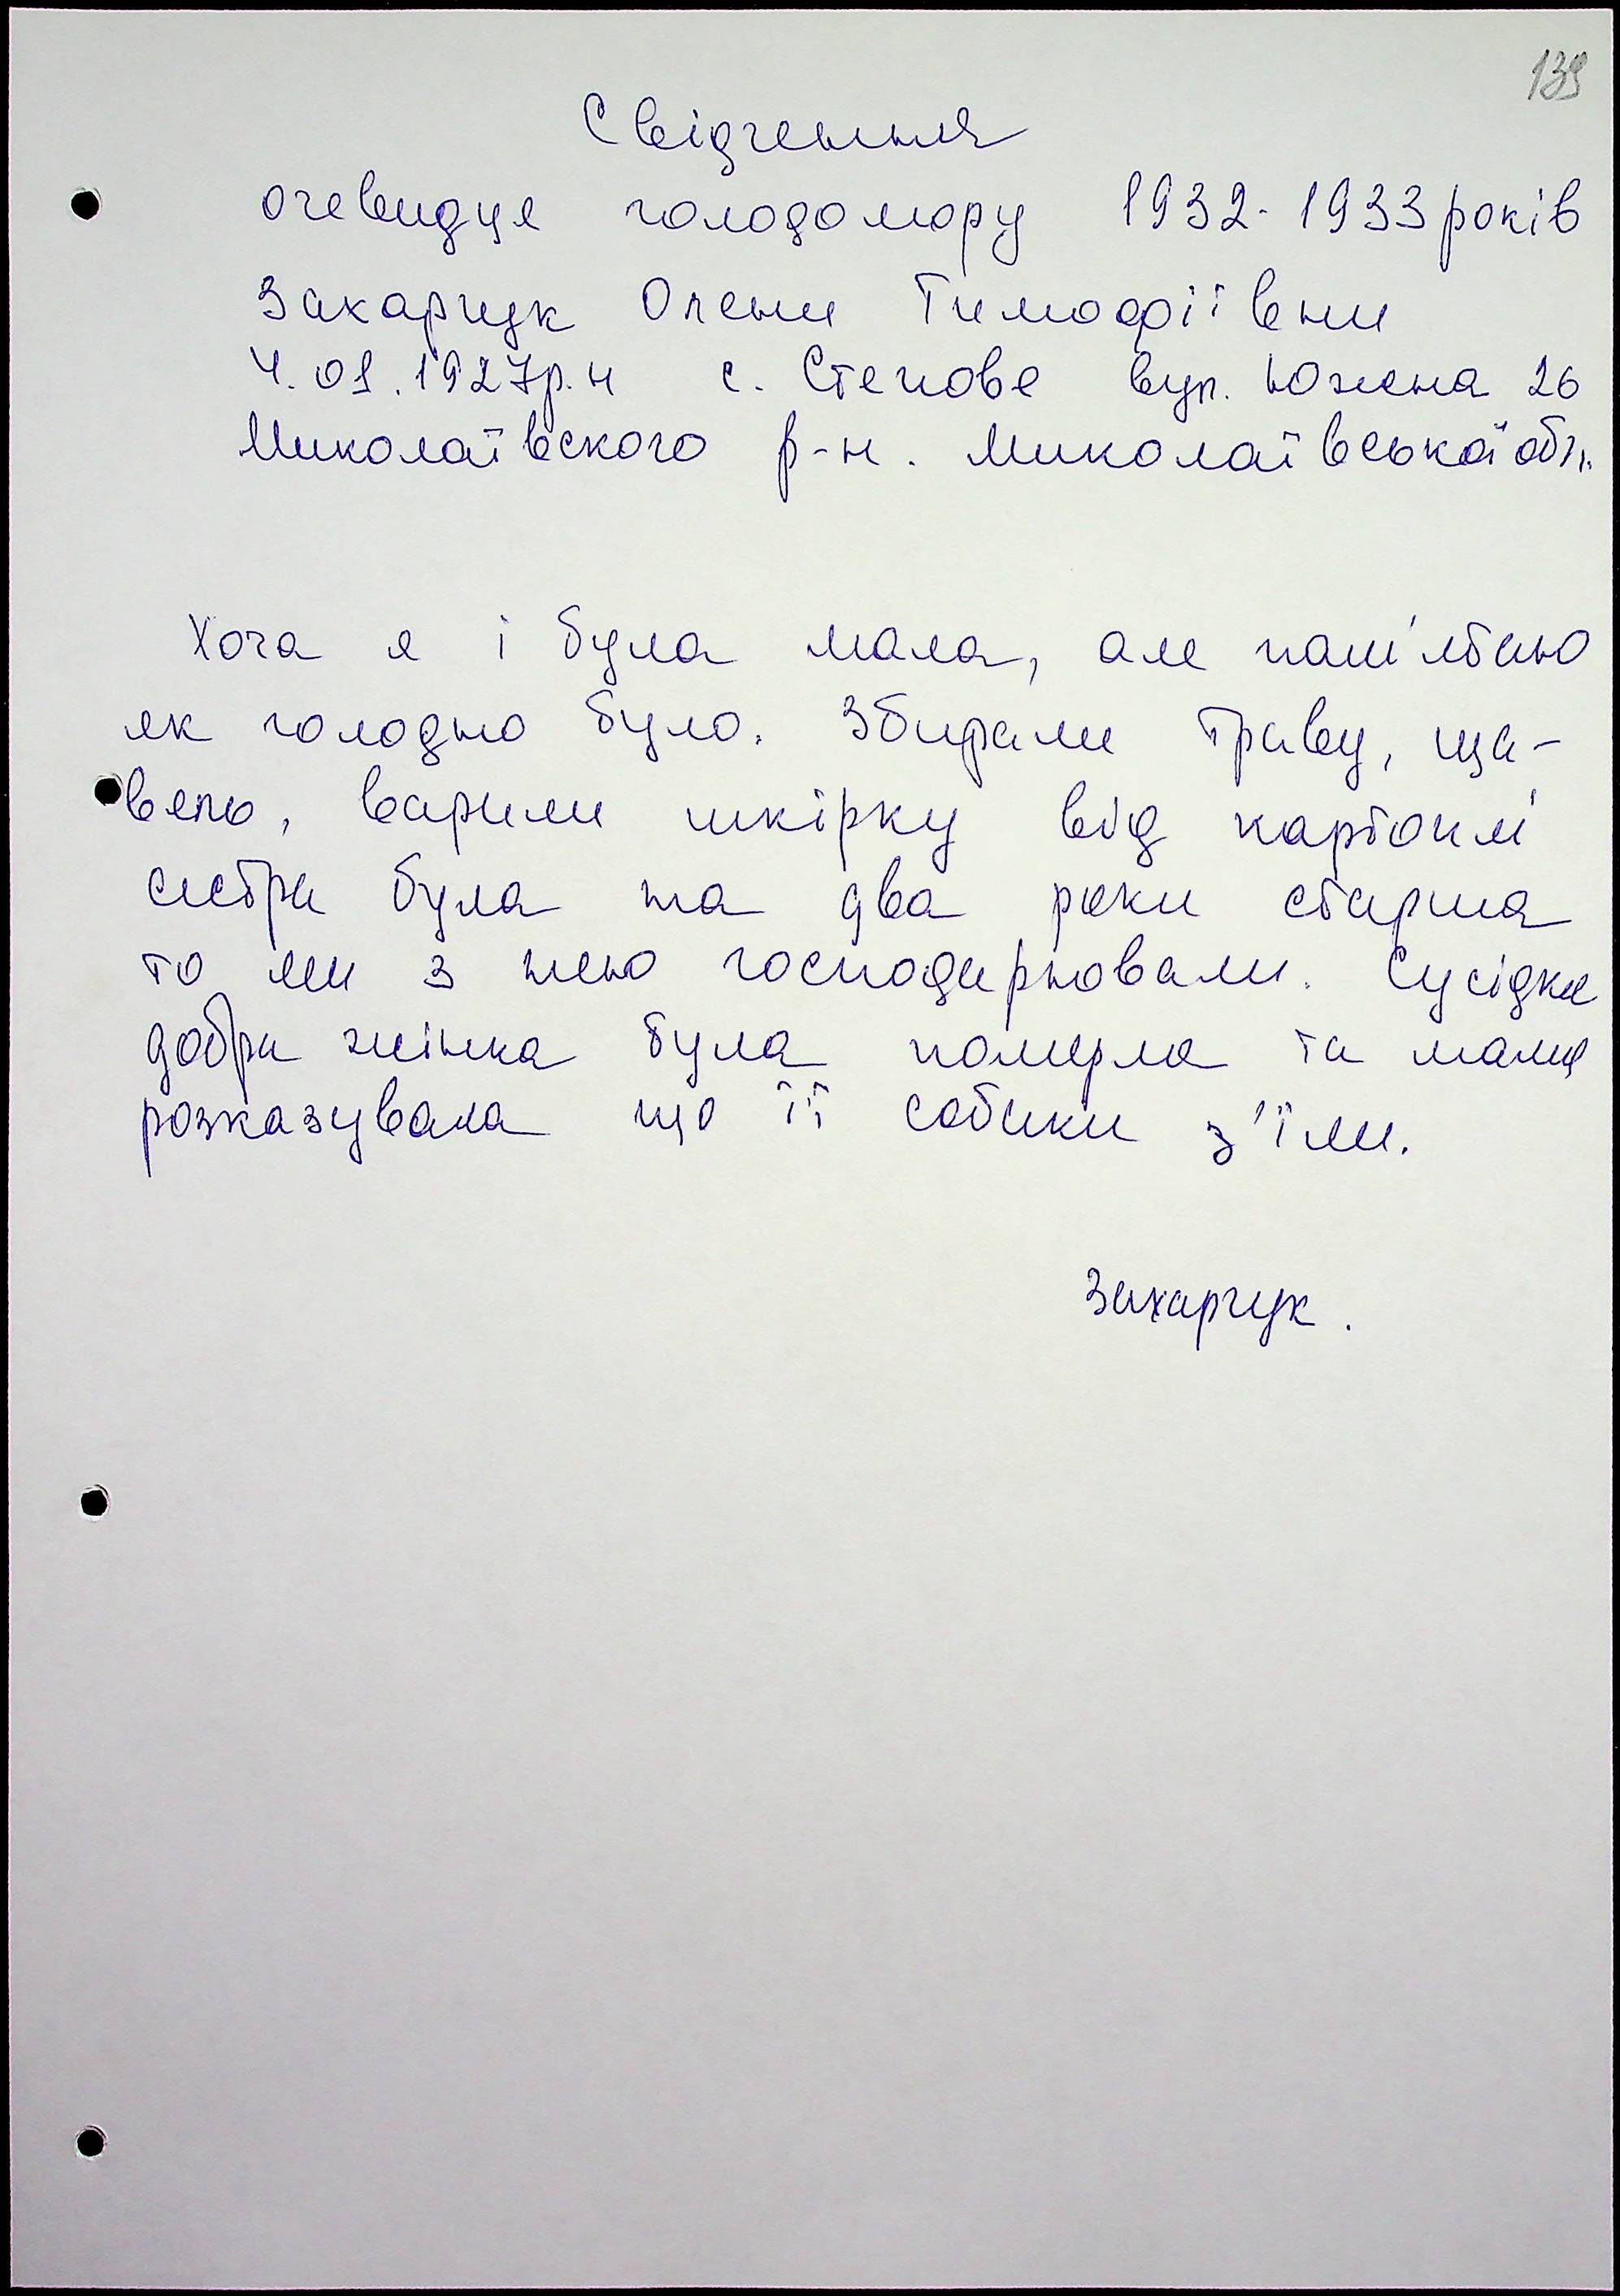 139
Свідчення
очевидця голодомору 1932-1933 років
Захарчук Олени Тимофіївни
4.01.1927р.н с. Степове вул. Южна 26
Миколаївского р-н. Миколаївської обл.
Хоча я і була мала, але пам'ятаю
як голодно було. Збирали траву, ща-
вель, варили шкірку від картоплі
сестра була на два роки старша
то ми з нею господарювали. Сусідка
добра жінка була померла та мама
розказувала що її собаки з'їли.
Захарчук.